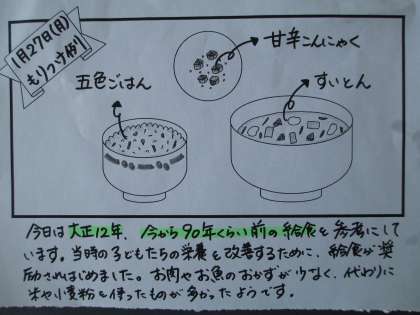 1月27日(月)
もりつけ例
甘辛こんにゃく
五色ごはん
すいとん
今日は大正12年、今から90年くらい前の給食を参考にして
います。当時の子どもたちの栄養を改善するために、給食が奨
励されはじめました。お肉やお魚のおかずが少なく、代わりに
米や小麦粉を使ったものが多かったようです。